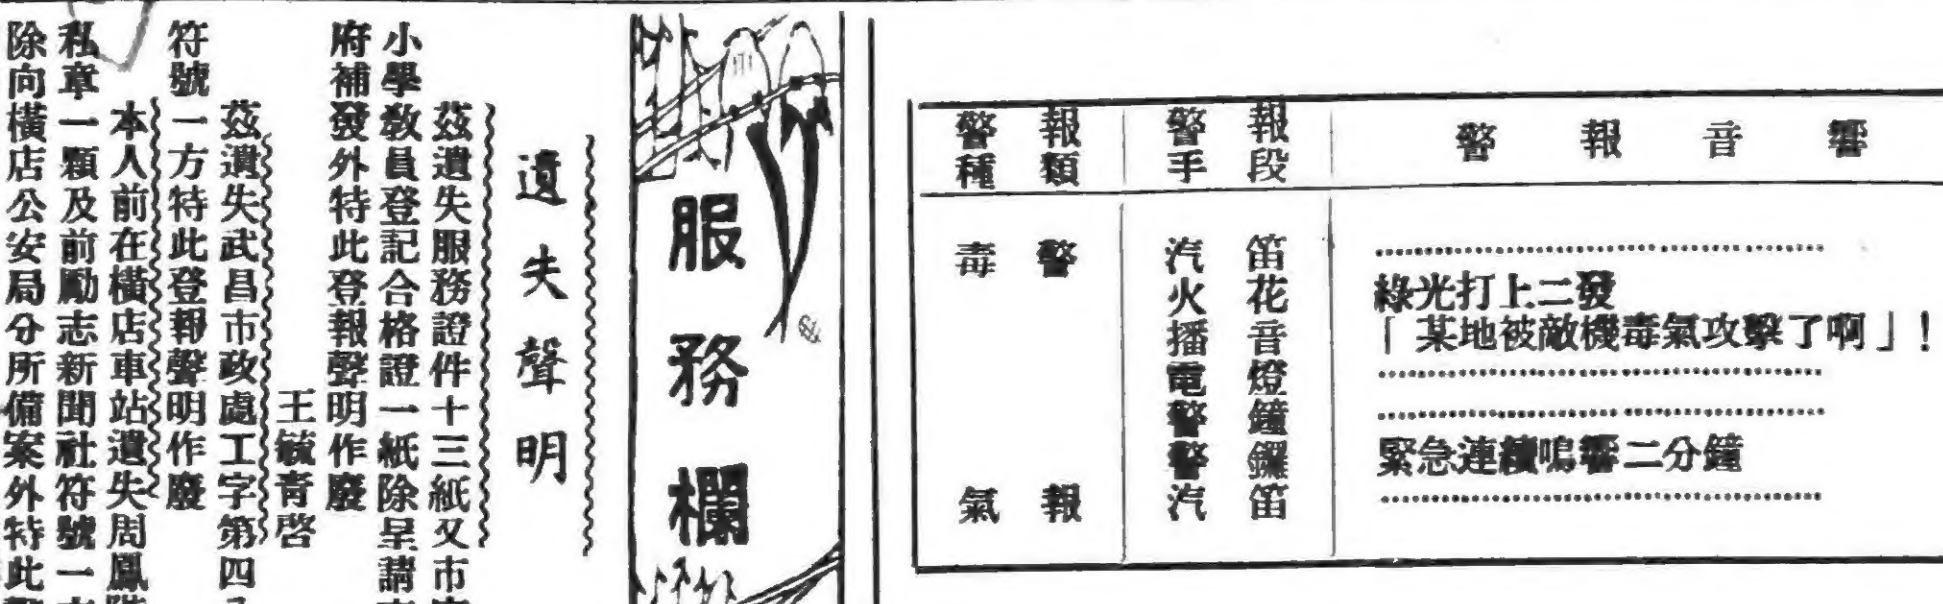 警報種類
警報手段
警報音響
毒氣警報
汽笛
火花
播音
電燈
警鐘
警鑼
汽笛
綠光打上二發
「某地被敵機毒氣攻擊了啊」!
緊急連續鳴響二分鐘
服務欄
遺失聲明
茲遺失服務證件十三紙又市
小學教員登記合格證一紙除呈請
府補發外特此登報聲明作廢
王毓青啓
茲遺失武昌市政處工字第四
符號一方特此登報聲明作廢
本人前在橫店車站遺失周鳳
私章一顆及前勵志新聞社符號一
除向橫店公安局分所備案外特此